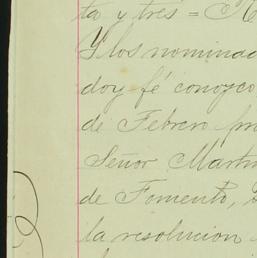 ta y trés =
Y los nominad
doy fé conozco
de Febrero pro
Señor Martin
de Fomento,
la resolucion